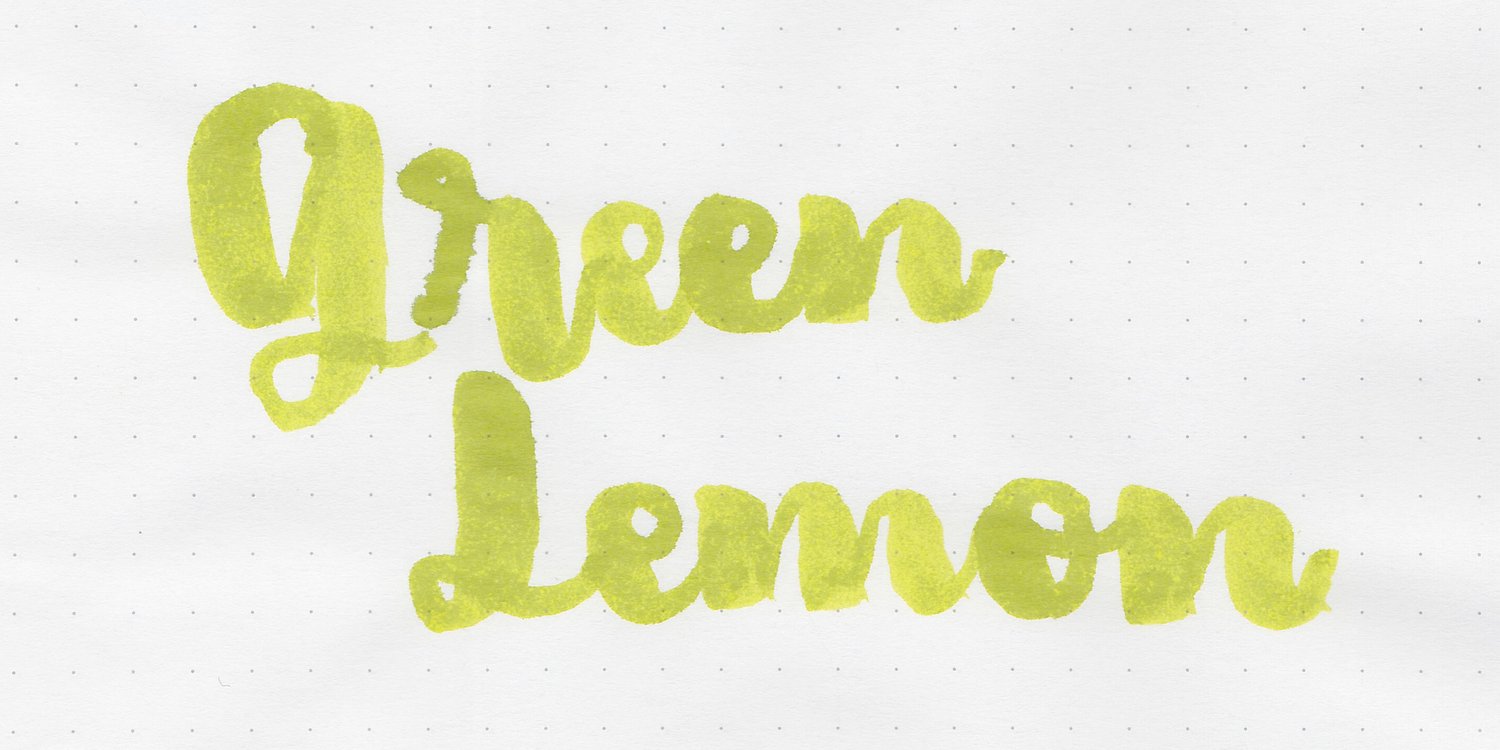 green
Lemon